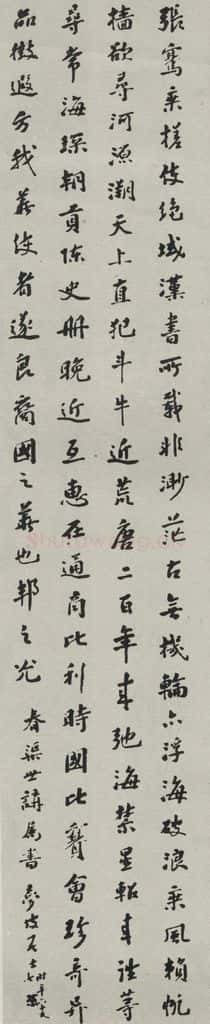 張騫乘槎使絕域漢書所載非渺茫古無機輪亦浮海破浪乘風賴帆
檣欲尋河源溯天上直犯斗牛近荒唐二百年來弛海禁星軺來往等
尋常海琛朝貢陳史冊晚近互惠在通商此利時國此賽會珍奇異
品徵遐方我羨使者遂良裔國之華也邦之光
春渠世講屬書